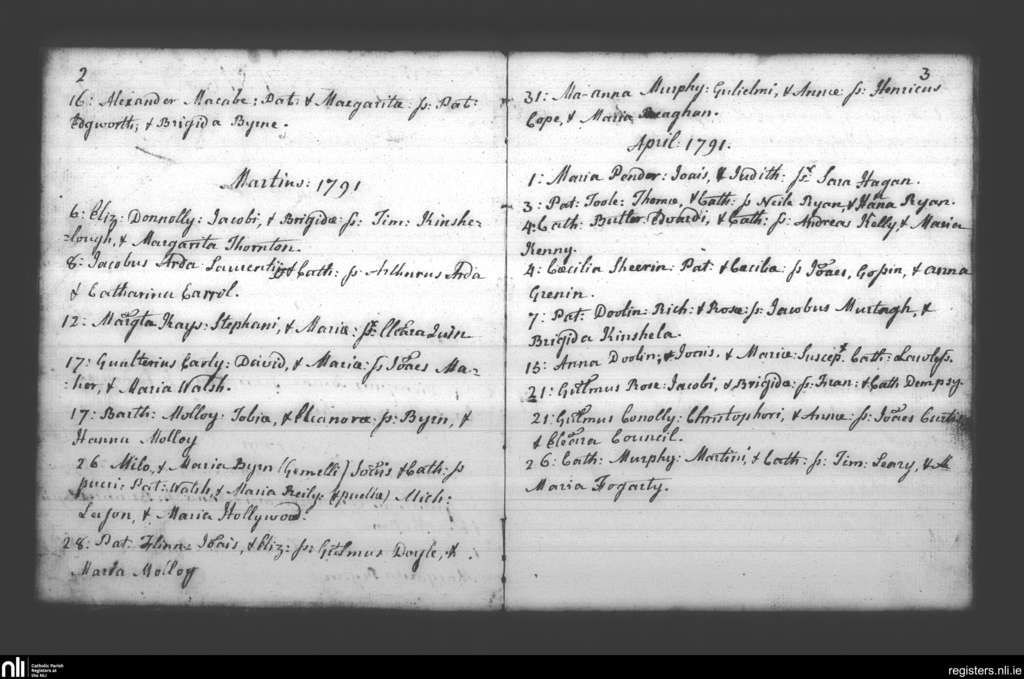 2
16: Alexander Macabe: Pat: & Margarita: sp: Pat:
Edgworth; & Brigida Byrne.
Martius: 1791
6: Eliz: Donnolly: Jacobi, & Brigidæ: sp: Tim: Kinshe-
-lough, & Margarita Thornton.
8: Jacobus Arda Laurentii, & Cath: sp: Arthurus Arda
& Catharina Carrol.
12: Margta Kays: Stephani, & Mariæ: sp: Elenra Quin
17: Gualterius Carly: David, & Mariæ: sp Joaes Ma-
-her, & Maria Walsh.
17: Barth: Molloy Tobiæ, & Eleanoræ: sp: Byrn, &
Hanna Molloy
26 Milo, & Maria Byrn (Gemelli) Joais & Cath: sp
pueri: Pat: Walsh, & Maria Reily: (puellæ) Mich:
& Maria Hollywood.
28: Pat: Flinn: Joais, & Eliz: sp: Gulmus Doyle, &
Maria Molloy
3
31: Ma-anna Murphy: Gulielmi, & Annæ sp: Henricus
Cope, & Maria Reaghan.
April: 1791.
1: Maria Pender: Joais, & Judith: sp: Sara Hagan.
3: Pat: Toole: Thoma, & Cath: sp Neile Ryan, & Hana Ryan.
4: Cath: Butler Edvardi, & Cath: sp: Andreas Kelly, & Maria
Kenny.
4: Cæcilia Sheerin: Pat: & Cæcilia: sp Joaes, & anna
Grenin.
7: Pat: Doolin: Rich: & Rosæ: sp: Jacobus Murtagh, &
Brigida Kinshela.
15: Anna Doolin; & Joais, & Mariæ: Suscept Cath: Lawless.
21: Gulmus Rose: Jacobi, & Brigidæ: sp: Fran: & Cath Dempsy.
21: Gulmus Conolly: Christophori, & Annæ: sp: Joaes Curtis
& Elenra Council.
26: Cath: Murphy: Martini, & Cath: sp: Tim: Leary, &
Maria Fogarty.
nli
Catholic Parish
Registers at
the NLI
registers.nli.ie